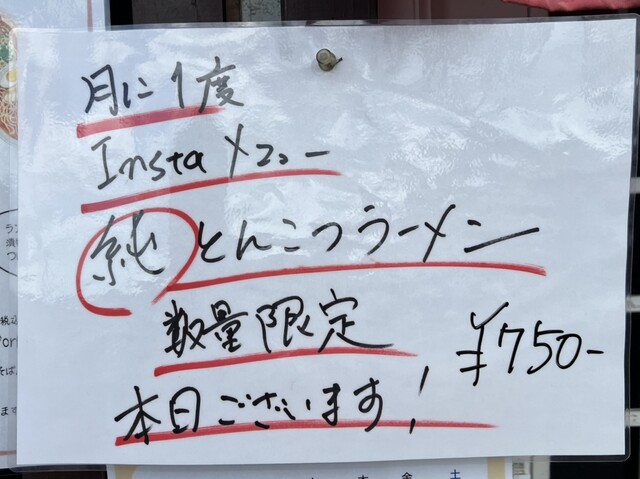 月に1度
Instaメニュー
純とんこつラーメン
数量限定
¥750-
本日ございます!
土 金 木